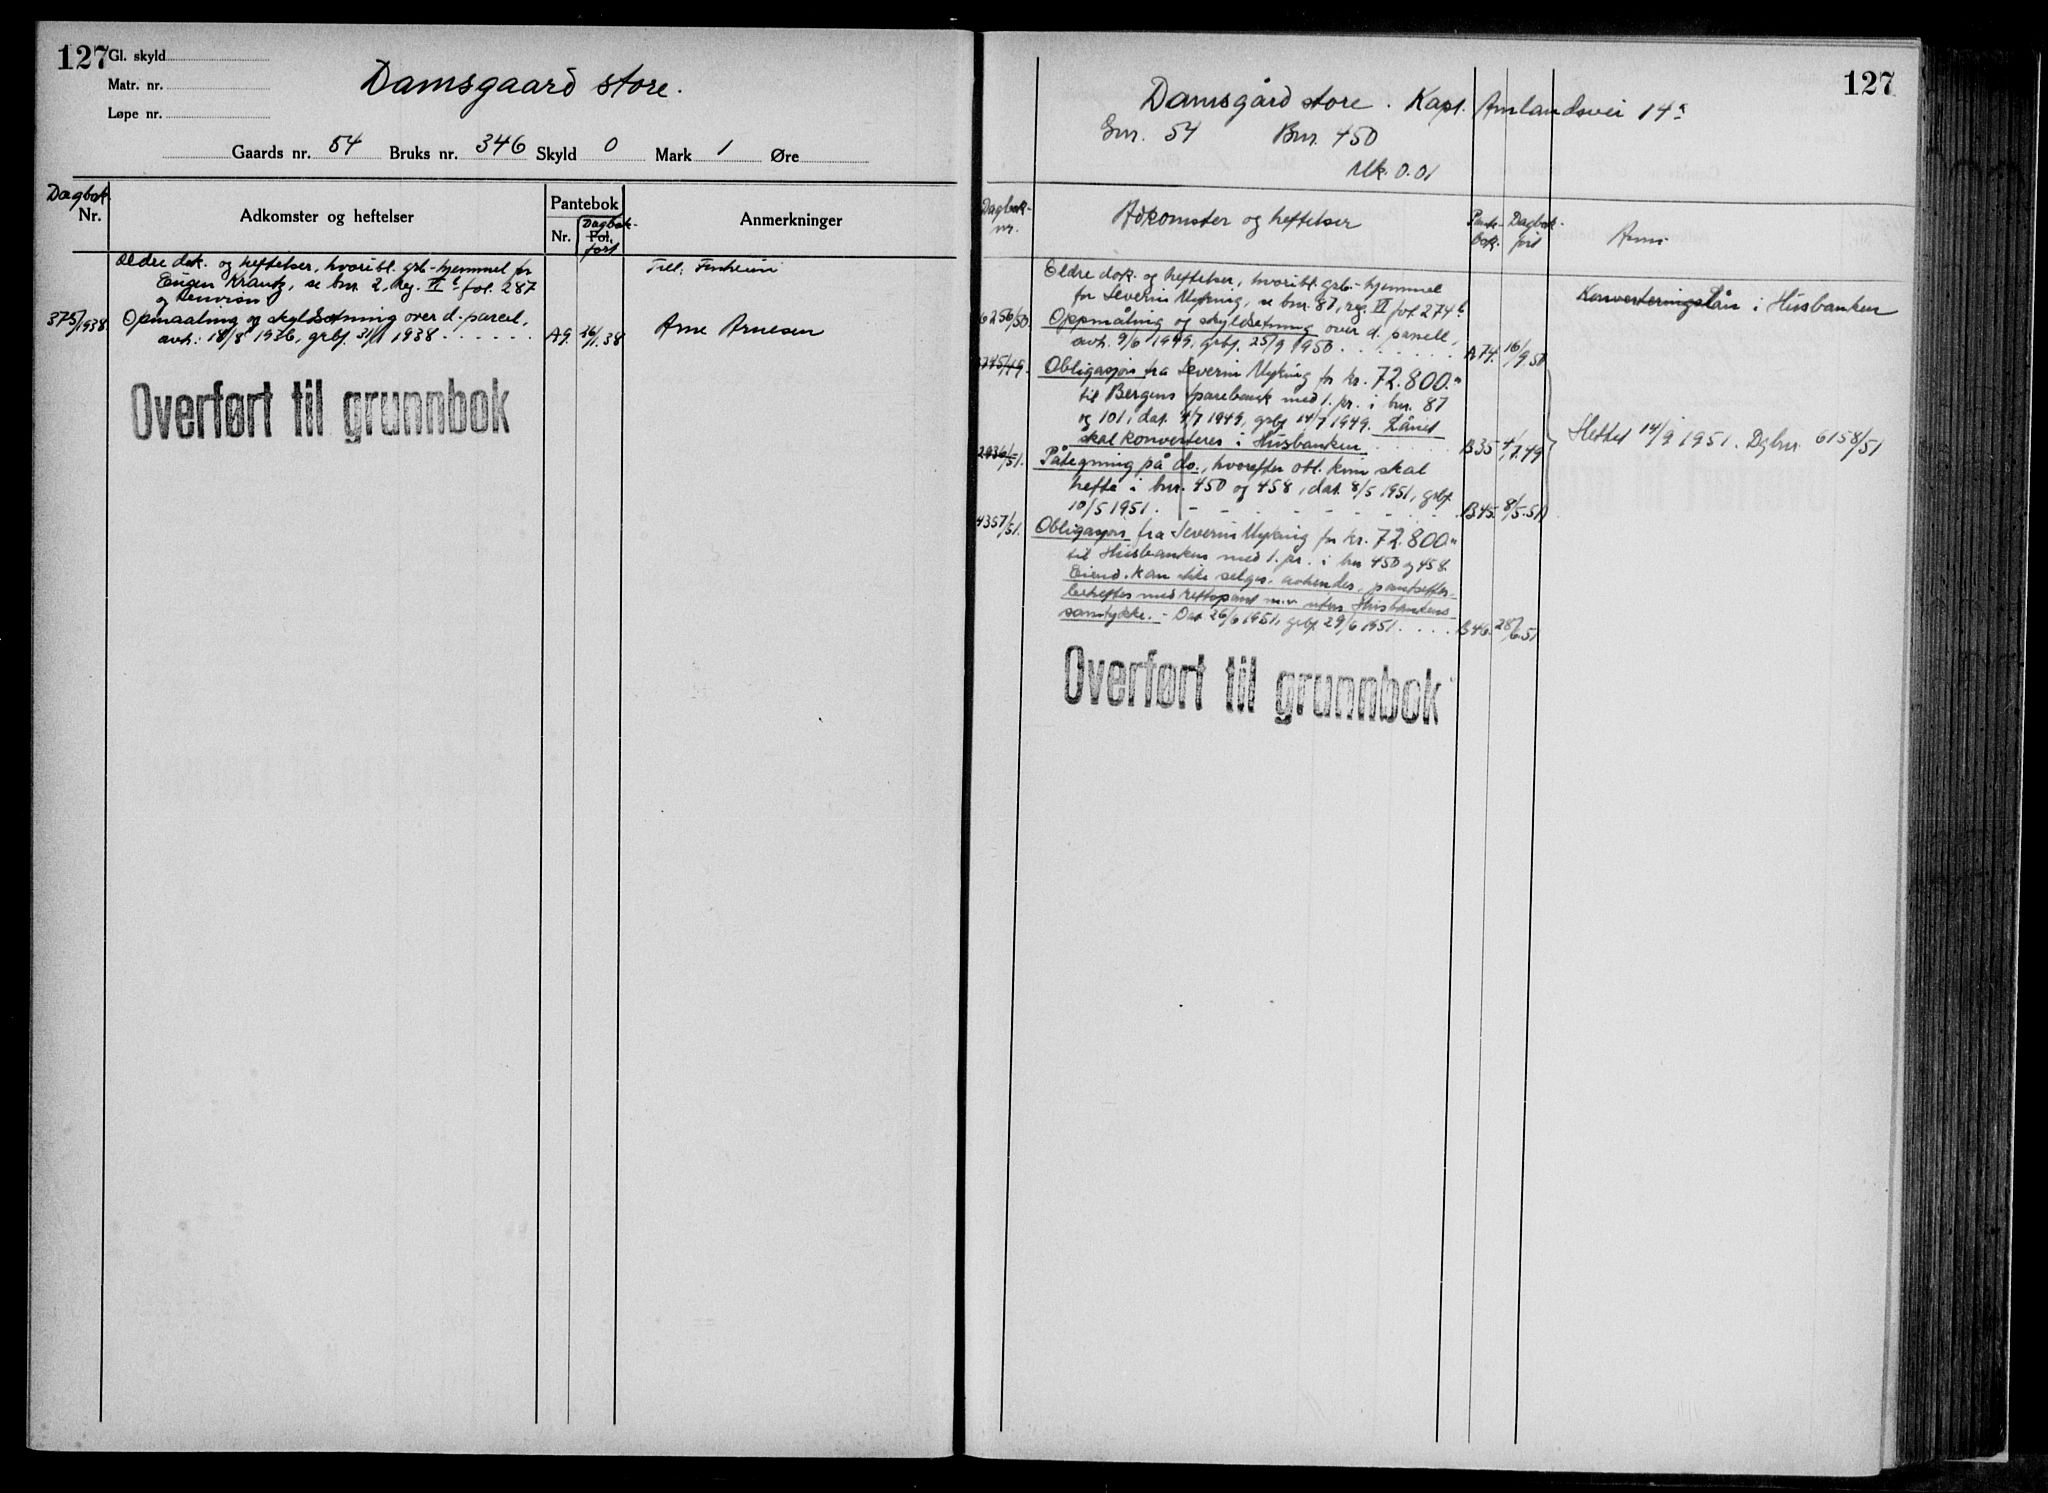 127
Gl. skyld
Matr. nr.
Løpe nr.
Damsgaard store.
Gaards nr. 54 Bruks nr. 346 Skyld 0 Mark 1 Øre
Dagbok
Nr.
Adkomster og heftelser
Pantebok
Nr.
Dagbok-
Fol.
ført
Anmerkninger
Eldre dok. og heftelser, hvoribl. grb-hjemmel for
Eugen Krantz, se bnr. 2, reg. VI fol. 287
og henvisn.
375/1938 Opmaaling og skyldsetning over d. parcel,
avh. 18/8 1936, grbf. 31/1 1938 . . . . . . A9. 26/1.38
Till.
Arne Arnesen
Overført til grunnbok
127
Damsgård store. Kapt. Amlandsvei 14a
Gnr. 54 Bnr. 450
Mk. 0.01
Dagbok-
nr.
Adkomster og heftelser
Pante-
bok.
Dagbok-
ført
Anm.
Eldre dok. og heftelser, hvoribl. grb.-hjemmel
for Severin Myking, se bnr. 87, reg. VI fol. 274
6256/50 Oppmåling og skyldsetning over d. parsell,
avh. 9/6 1949, grbf. 25/9 1950 . . . . . . . A74. 16/9 50
2745/49. Obligasjon fra Severin Myking for kr. 72.800.-
til Bergens sparebank med 1. pr. i bnr. 87
og 101, dat. 4/7 1949, grbf. 14/7 1949. Lånet
skal konverteres i Husbanken . . . B35 4/7.49
2936/51. Påtegning på do., hvorefter obl. kun skal
hefte i bnr. 450 og 458, dat. 8/5 1951, grbf.
10/5 1951. - - - - - - - - B45. 8/5.51
4357/51. Obligasjon fra Severin Myking for kr. 72.800.-
til Husbanken med 1. pr. i bnr 450 og 458.
Eiend. kan ikke selges, avhendes, pantsettes
beheftes med rettspant m.v. uten Husbankens
samtykke. - Dat 26/6 1951, grbf. 29/6 1951. . . . B46. 28/6.51
Konverteringslån i Husbanken
Slettet 14/9 1951. Dgbnr. 6158/51
Overført til grunnbok